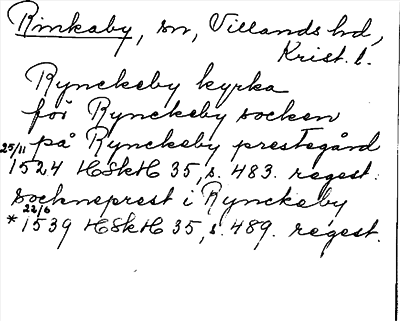 Rinkaby, sn, Villands hd,
Krist. l.
Rynckeby kyrka
för Rynckeby socken
på Rynckeby prestegård
25/11 1524 HSkH 35, s. 483. regest.
sockneprest i Rynckeby
* 22/6 1539 HSkH 35, s. 489. regest.